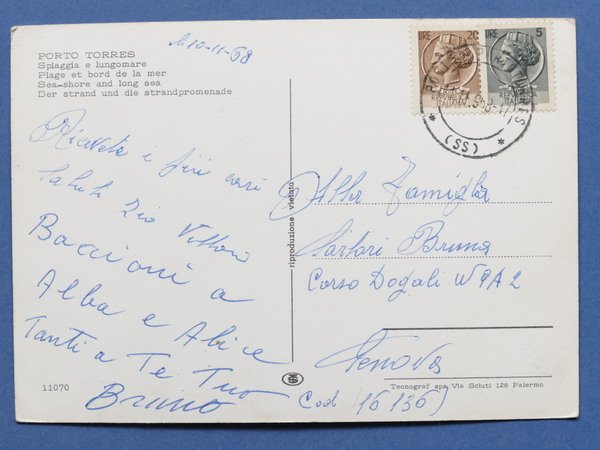 PORTO TORRES
Spiaggia e lungomare
Plage et bord de la mer
Sea-shore and long sea
Der strand und die strandpromenade
li 10-11-68
Ricevete i più cari
saluti Zio Vittorio
Baccioni a
Alba e Alice
Tanti a Te Tuo
Bruno
11070
riproduzione vietata
LIRE 20
REPUBBLICA
ITALIANA
LIRE 5
REPUBBLICA
ITALIANA
(SS)
Alla Famiglia
Sartori Bruna
Corso Dogali N° 2
Genova
Cod (16136)
Tecnograf spa Via Sciuti 128 Palermo